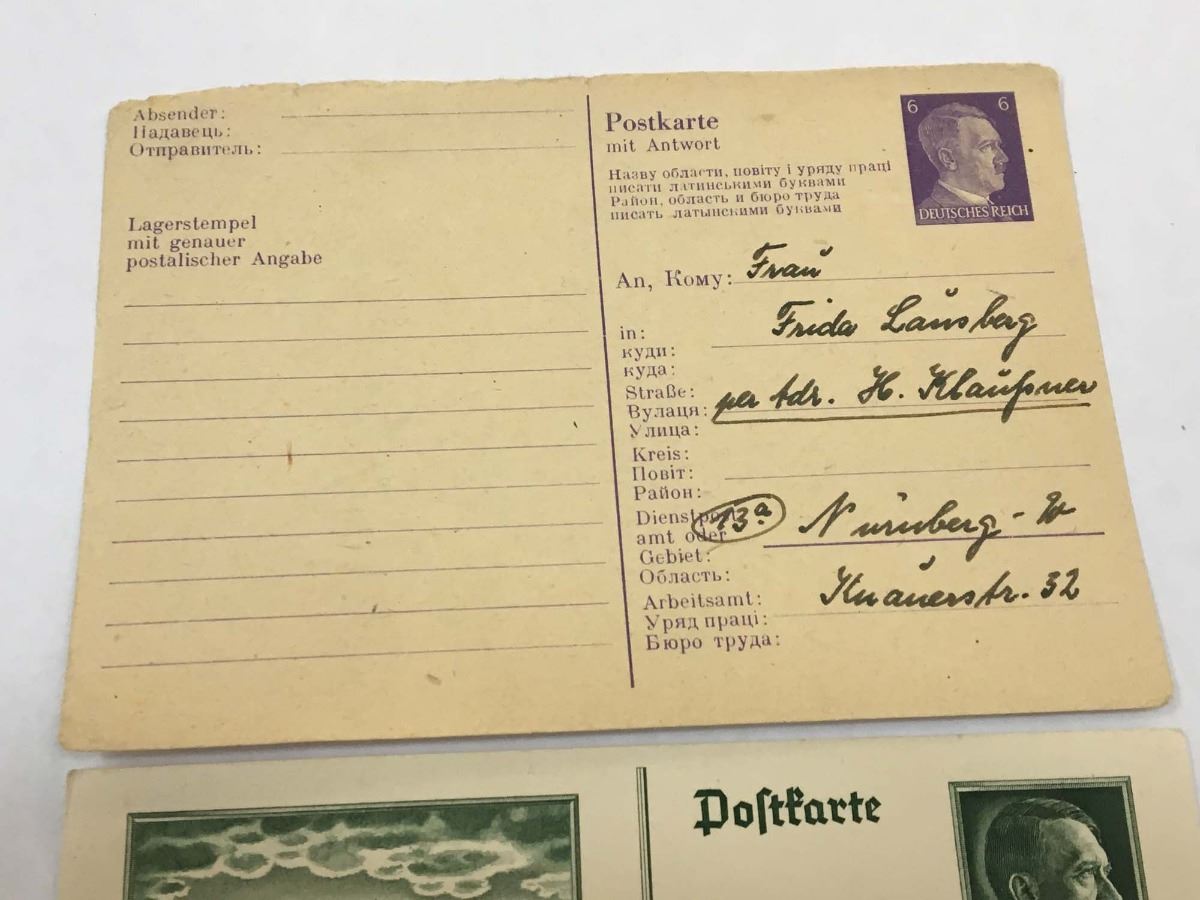 Absender:
Надавець:
Отправитель:
Lagerstempel
mit genauer
postalischer Angabe
Postkarte
mit Antwort
Назву области, повіту і уряду праці
писати латинськими буквами
Район, область и бюро труда
писать латынскими буквами
6 6
DEUTSCHES REICH
An, Кому: Frau
in: Frida Lausberg
куди:
куда:
Straße: per Adr. H. Klaußner
Вулаця:
Улица:
Kreis:
Повіт:
Район:
Dienstpost
amt oder 13a Nürnberg-W
Gebiet:
Область:
Arbeitsamt: Knauerstr. 32
Уряд праці:
Бюро труда:
Postkarte